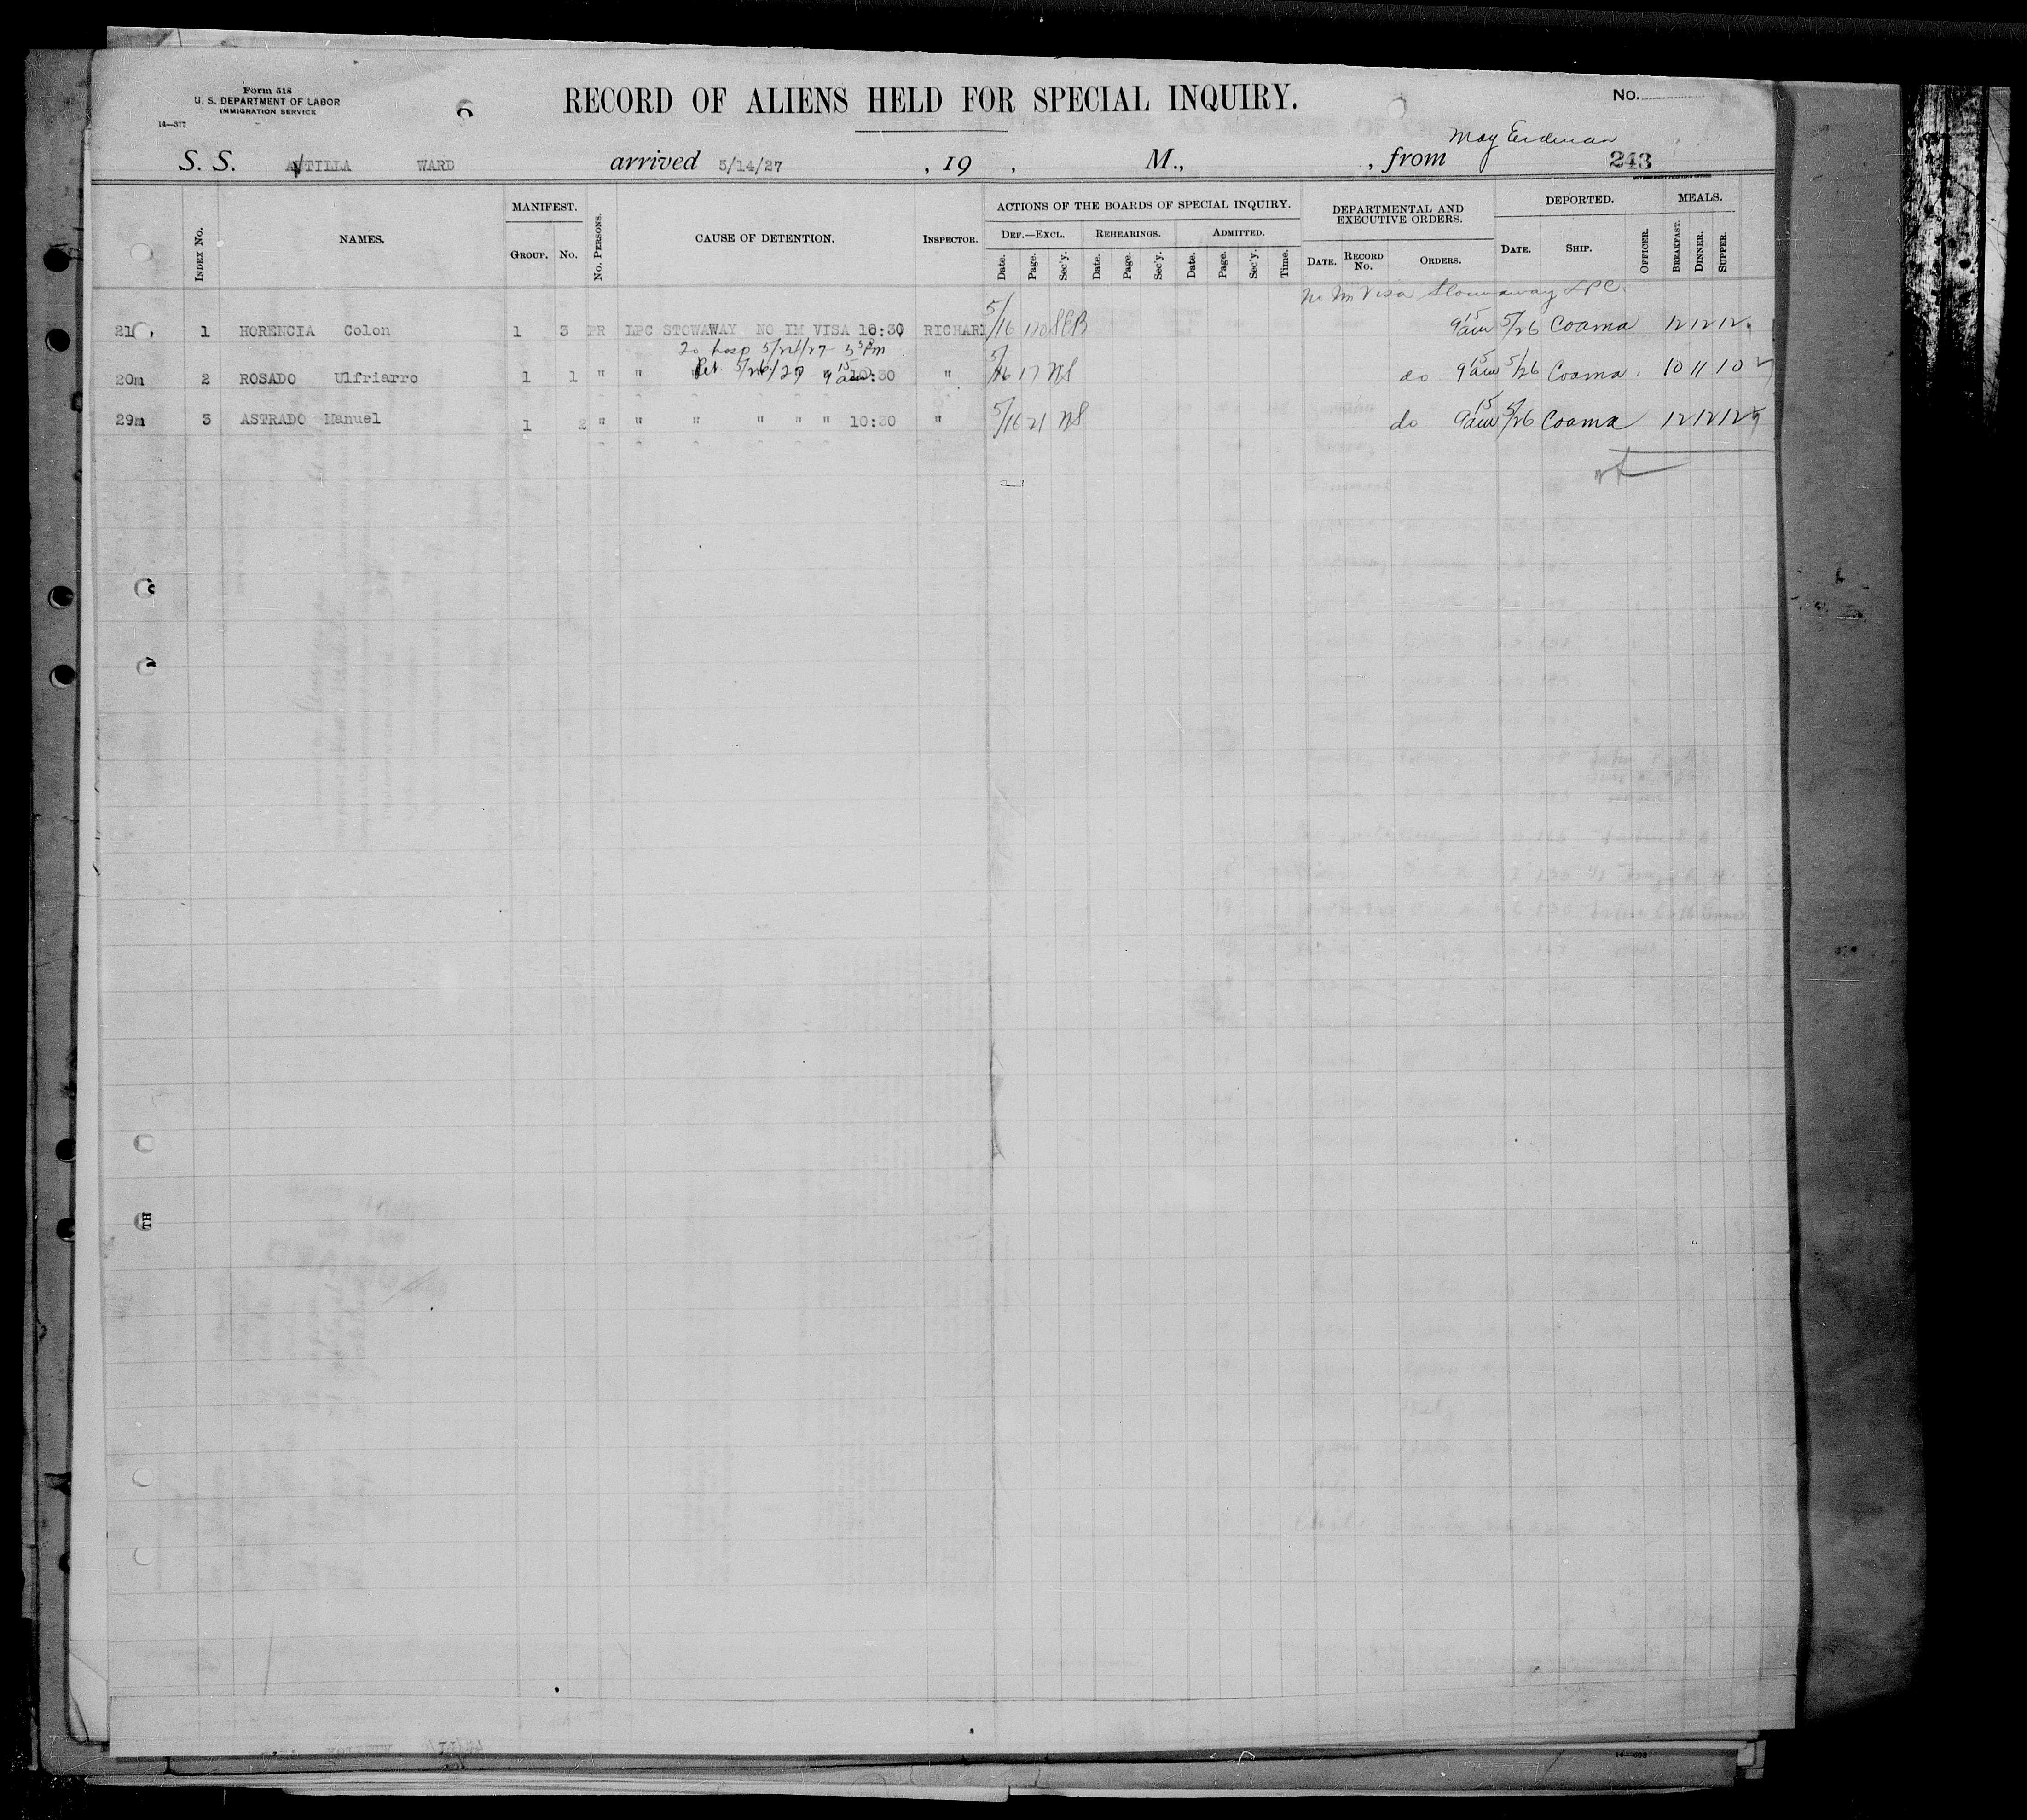 Form 518
U. S. DEPARTMENT OF LABOR
IMMIGRATION SERVICE
14—377
RECORD OF ALIENS HELD FOR SPECIAL INQUIRY.
No.
May Erdman
S. S. ATTILLA WARD arrived 5/14/27, 19 , M., , from
243
INDEX No. NAMES. MANIFEST. GROUP. No. No. PERSONS. CAUSE OF DETENTION. INSPECTOR. ACTIONS OF THE BOARDS OF SPECIAL INQUIRY. DEF.—EXCL. Date. Page. Sec'y. REHEARINGS. Date. Page. Sec'y. ADMITTED. Date. Page. Sec'y. Time. DEPARTMENTAL AND EXECUTIVE ORDERS. DATE. RECORD No. ORDERS. DEPORTED. DATE. SHIP. OFFICER. MEALS. BREAKFAST. DINNER. SUPPER.
No Im Visa Stowaway LPC.
21 1 HORENCIA Colon 1 3 PR LPC STOWAWAY NO IM VISA 10:30 RICHARD 5/16 SEB 9 15 am 5/26 Coama 12 12 12
To hosp 5/24/27
20m 2 ROSADO Ulfriarro 1 1 " " " " " 10:30 " 5/16 17 NS do 9 15 am 5/26 Coama 10 11 10
29m 3 ASTRADO Manuel 1 2 " " " " " " 10:30 " 5/16 21 NS do 9 15 am 5/26 Coama 12 12 12
TH